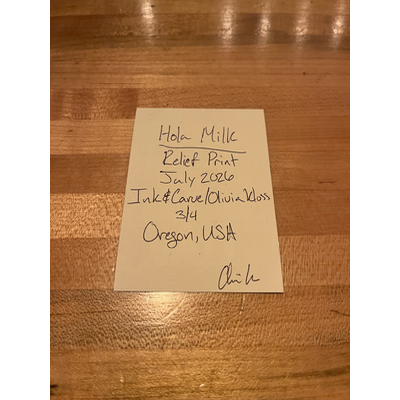 Hola Milk
Relief Print
July 2026
Ink & Carve/Olivia Kloss
3/4
Oregon, USA